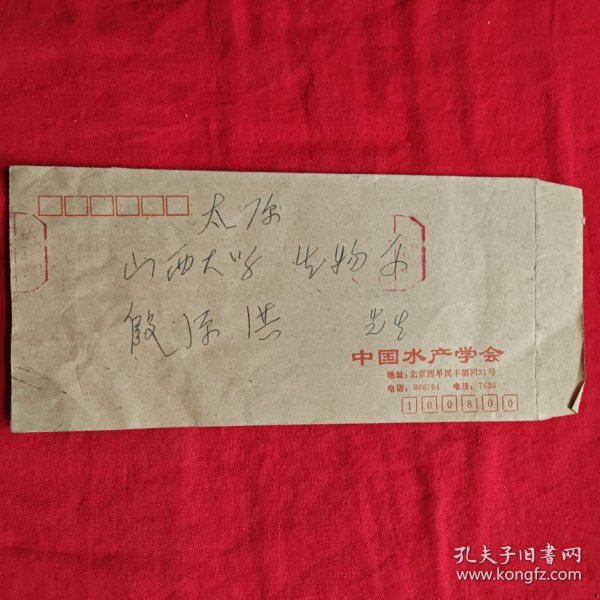 太原
山西大学 生物系
殷源洪 先生
中国水产学会
地址：北京西单民丰胡同31号
电话：660794 电挂：7625
100800
孔夫子旧书网
www.kongfz.com